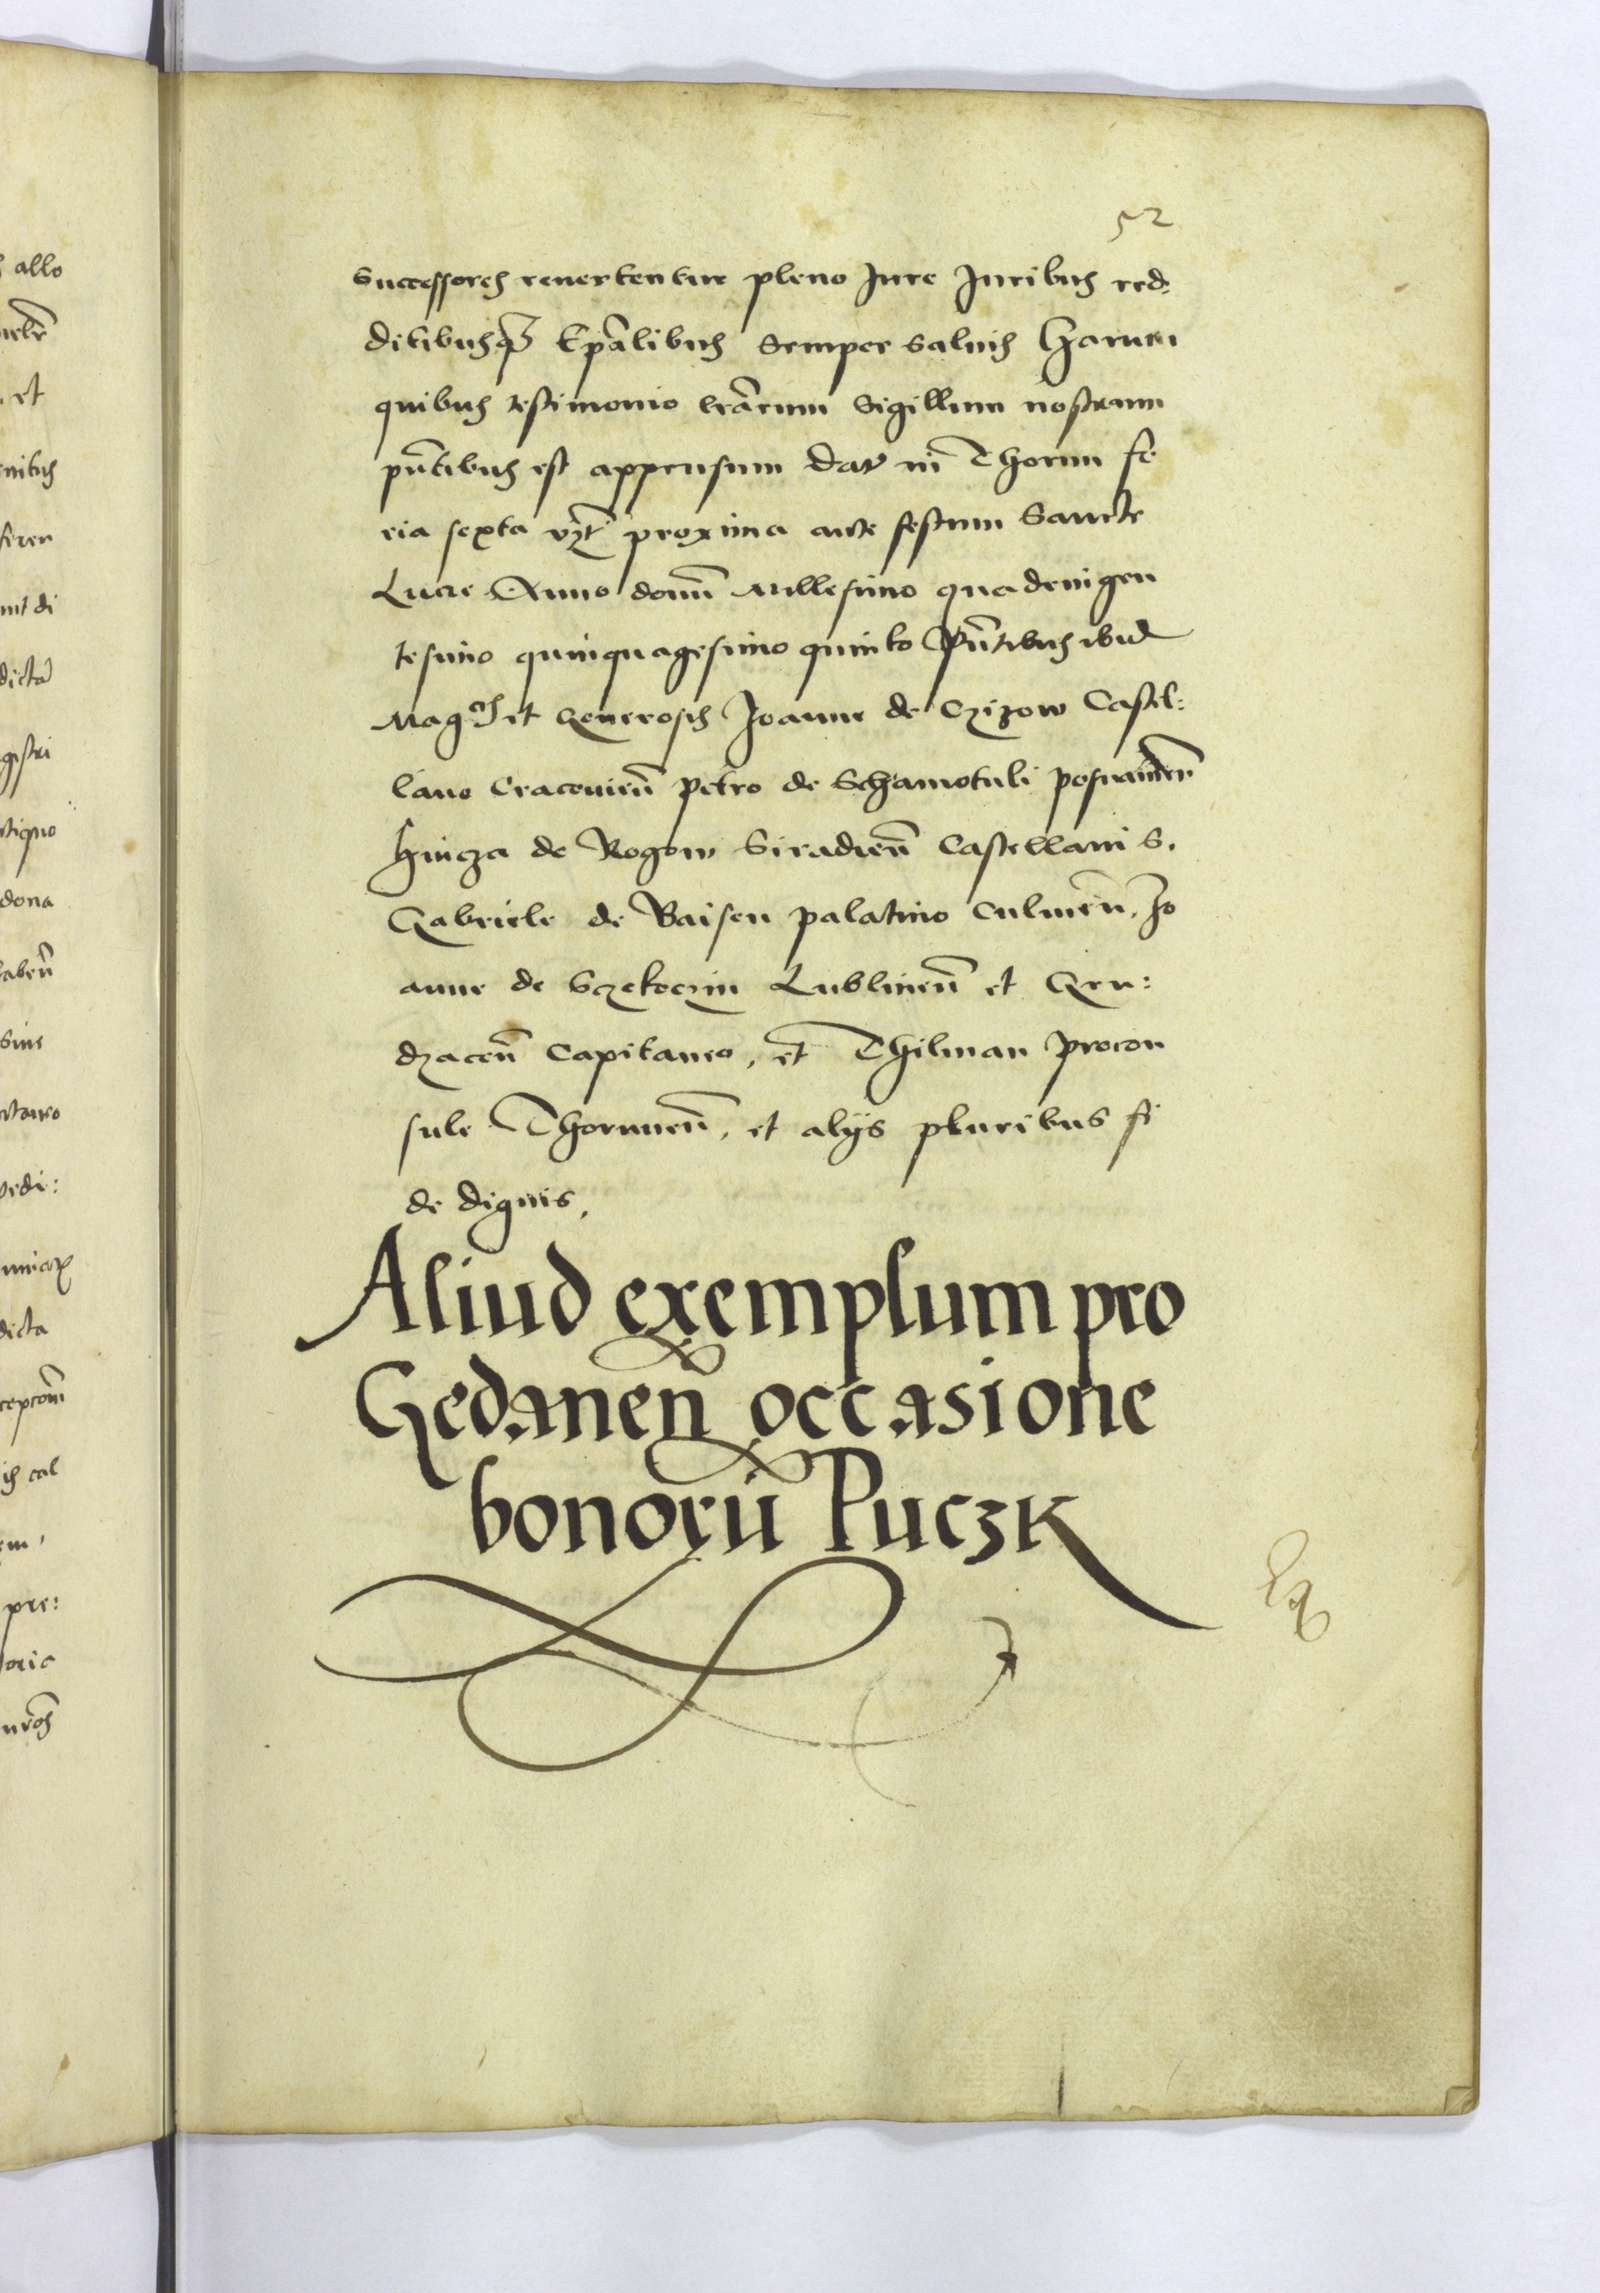 52
Successores reuertentur pleno Jure Juribus red:
ditibusq3 Epalibus Semper Saluis Harum
quibus testimonio lrarum Sigillum nostrum
pntibus est appensum Dat in Thorun fe
ria sexta vzt proxima ante festum Sancte
Lucie Anno domi Millesimo quadringen
tesimo quinquagesimo quinto Pntibus ibid
Magcis et Generosis Joanne de Czizow Castel:
lano Cracouien Petro de Schamotuli posnanien
Hincza de Rogow Siradien Castellanis.
Gabriele de Baisen palatino Culmen, Jo
anne de Sczekoczin Lublinen et Gru:
dzacen Capitaneo, et Thilman procon
sule Thorunen, et alijs pluribus fi
de dignis,
Aliud exemplum pro
Gedanen occasione
bonoru Puczk